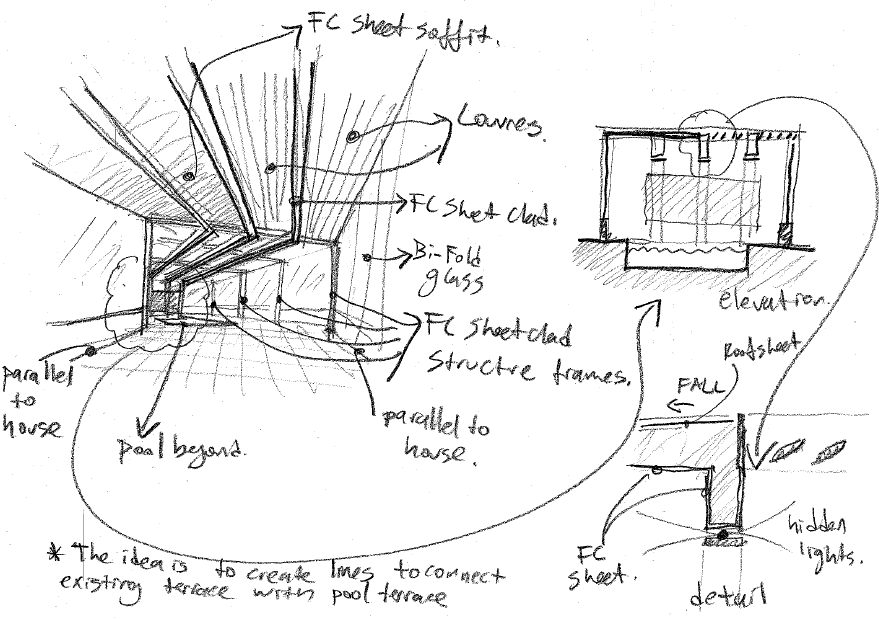 FC sheet soffit.
Louvres.
FC Sheet clad.
Bi-Fold
glass
FC Sheet clad
Structre frames.
parallel
to
house
pool beyond.
parallel to
house.
elevation.
Roof sheet
FALL
FC
sheet.
hidden
lights.
detail
* The idea is to create lines to connect
existing terrace with pool terrace